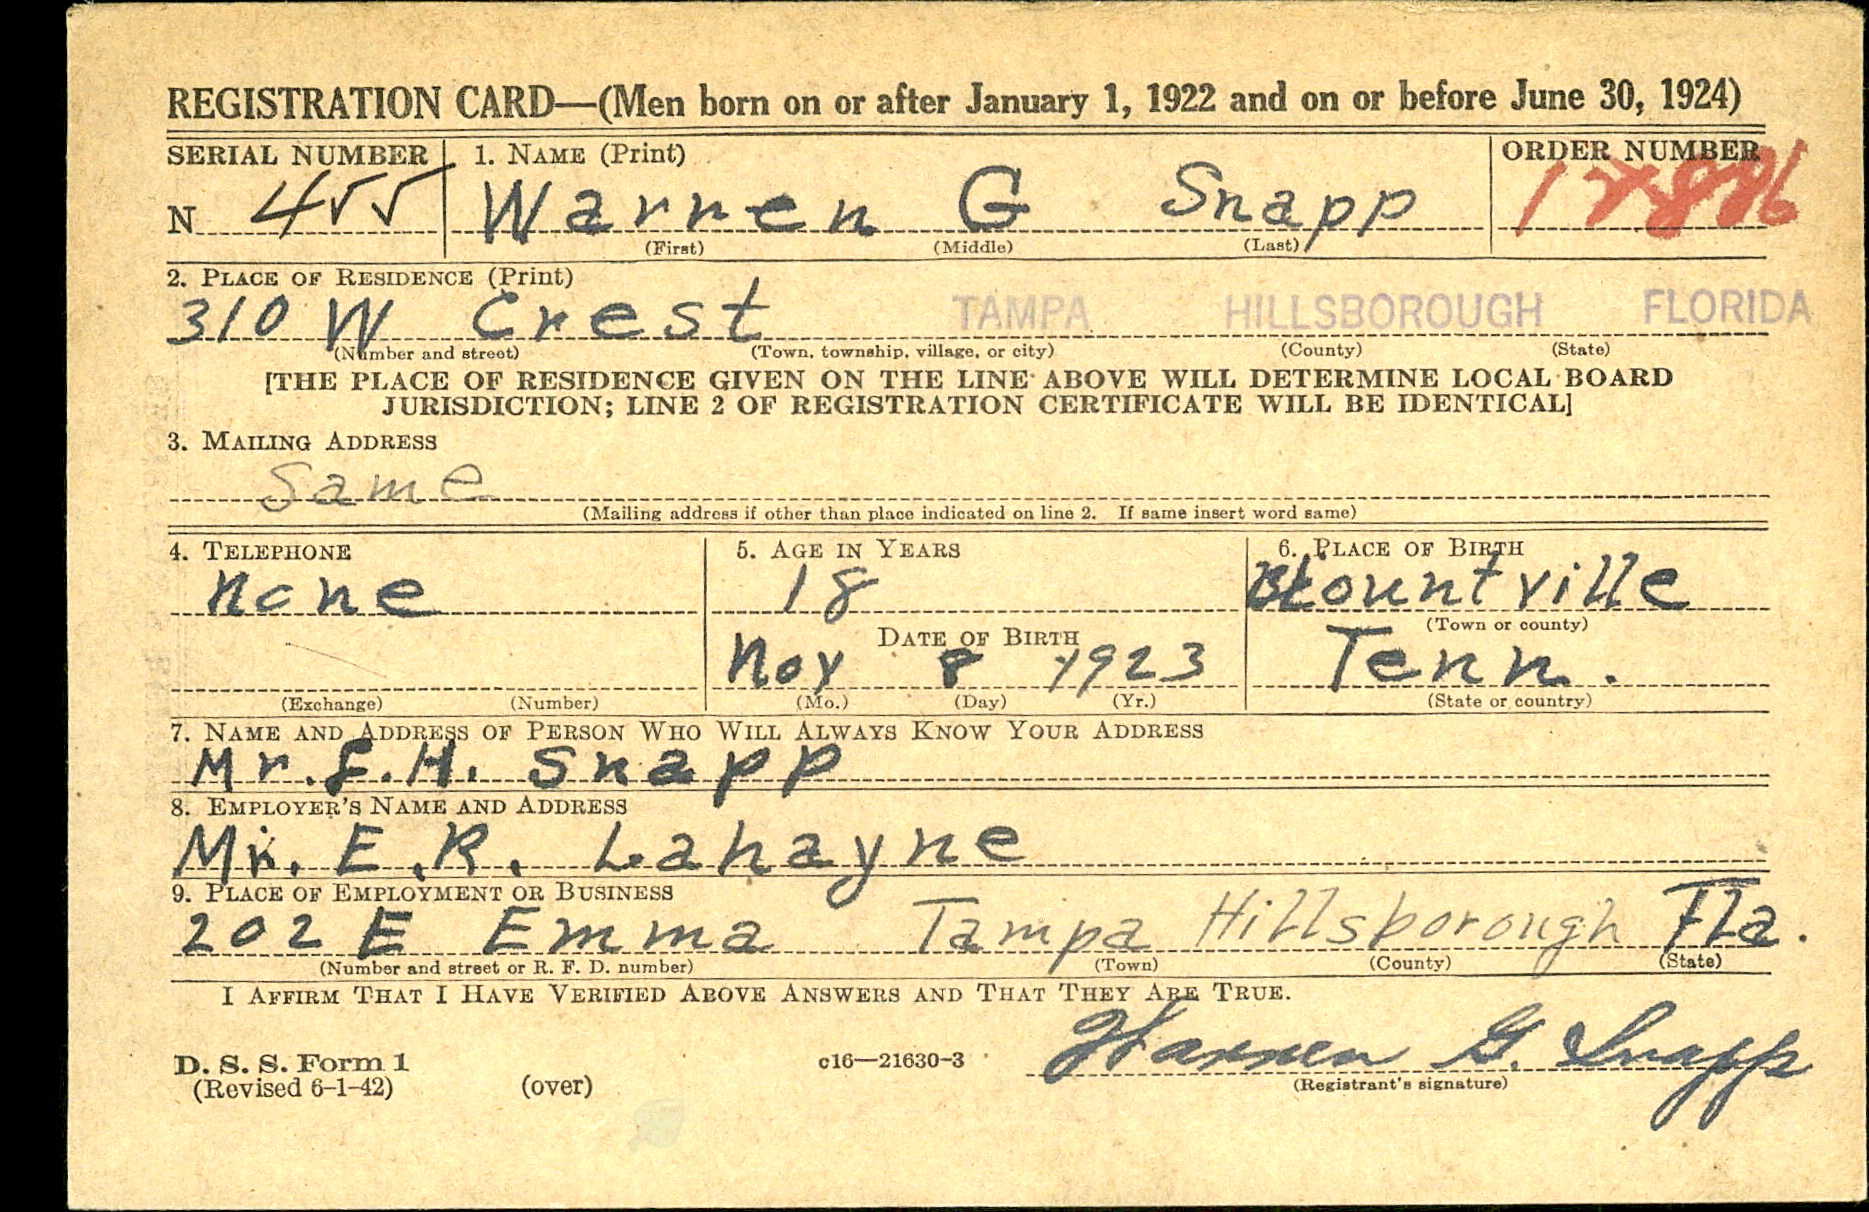 REGISTRATION CARD—(Men born on or after January 1, 1922 and on or before June 30, 1924)
SERIAL NUMBER 1. NAME (Print) ORDER NUMBER
N 455 Warren G Snapp
(First) (Middle) (Last)
2. PLACE OF RESIDENCE (Print)
310 W Crest TAMPA HILLSBOROUGH FLORIDA
(Number and street) (Town, township, village, or city) (County) (State)
[THE PLACE OF RESIDENCE GIVEN ON THE LINE ABOVE WILL DETERMINE LOCAL BOARD
JURISDICTION; LINE 2 OF REGISTRATION CERTIFICATE WILL BE IDENTICAL]
3. MAILING ADDRESS
Same
(Mailing address if other than place indicated on line 2. If same insert word same)
4. TELEPHONE 5. AGE IN YEARS 6. PLACE OF BIRTH
None 18 Blountville
(Town or county)
DATE OF BIRTH
Nov 8 1923 Tenn.
(Exchange) (Number) (Mo.) (Day) (Yr.) (State or country)
7. NAME AND ADDRESS OF PERSON WHO WILL ALWAYS KNOW YOUR ADDRESS
Mr. H. Snapp
8. EMPLOYER'S NAME AND ADDRESS
Mr. E. R. Lahayne
9. PLACE OF EMPLOYMENT OR BUSINESS
202 E Emma Tampa Hillsborough Fla.
(Number and street or R. F. D. number) (Town) (County) (State)
I AFFIRM THAT I HAVE VERIFIED ABOVE ANSWERS AND THAT THEY ARE TRUE.
D. S. S. Form 1 c16—21630-3 Warren G. Snapp
(Revised 6-1-42) (over) (Registrant's signature)